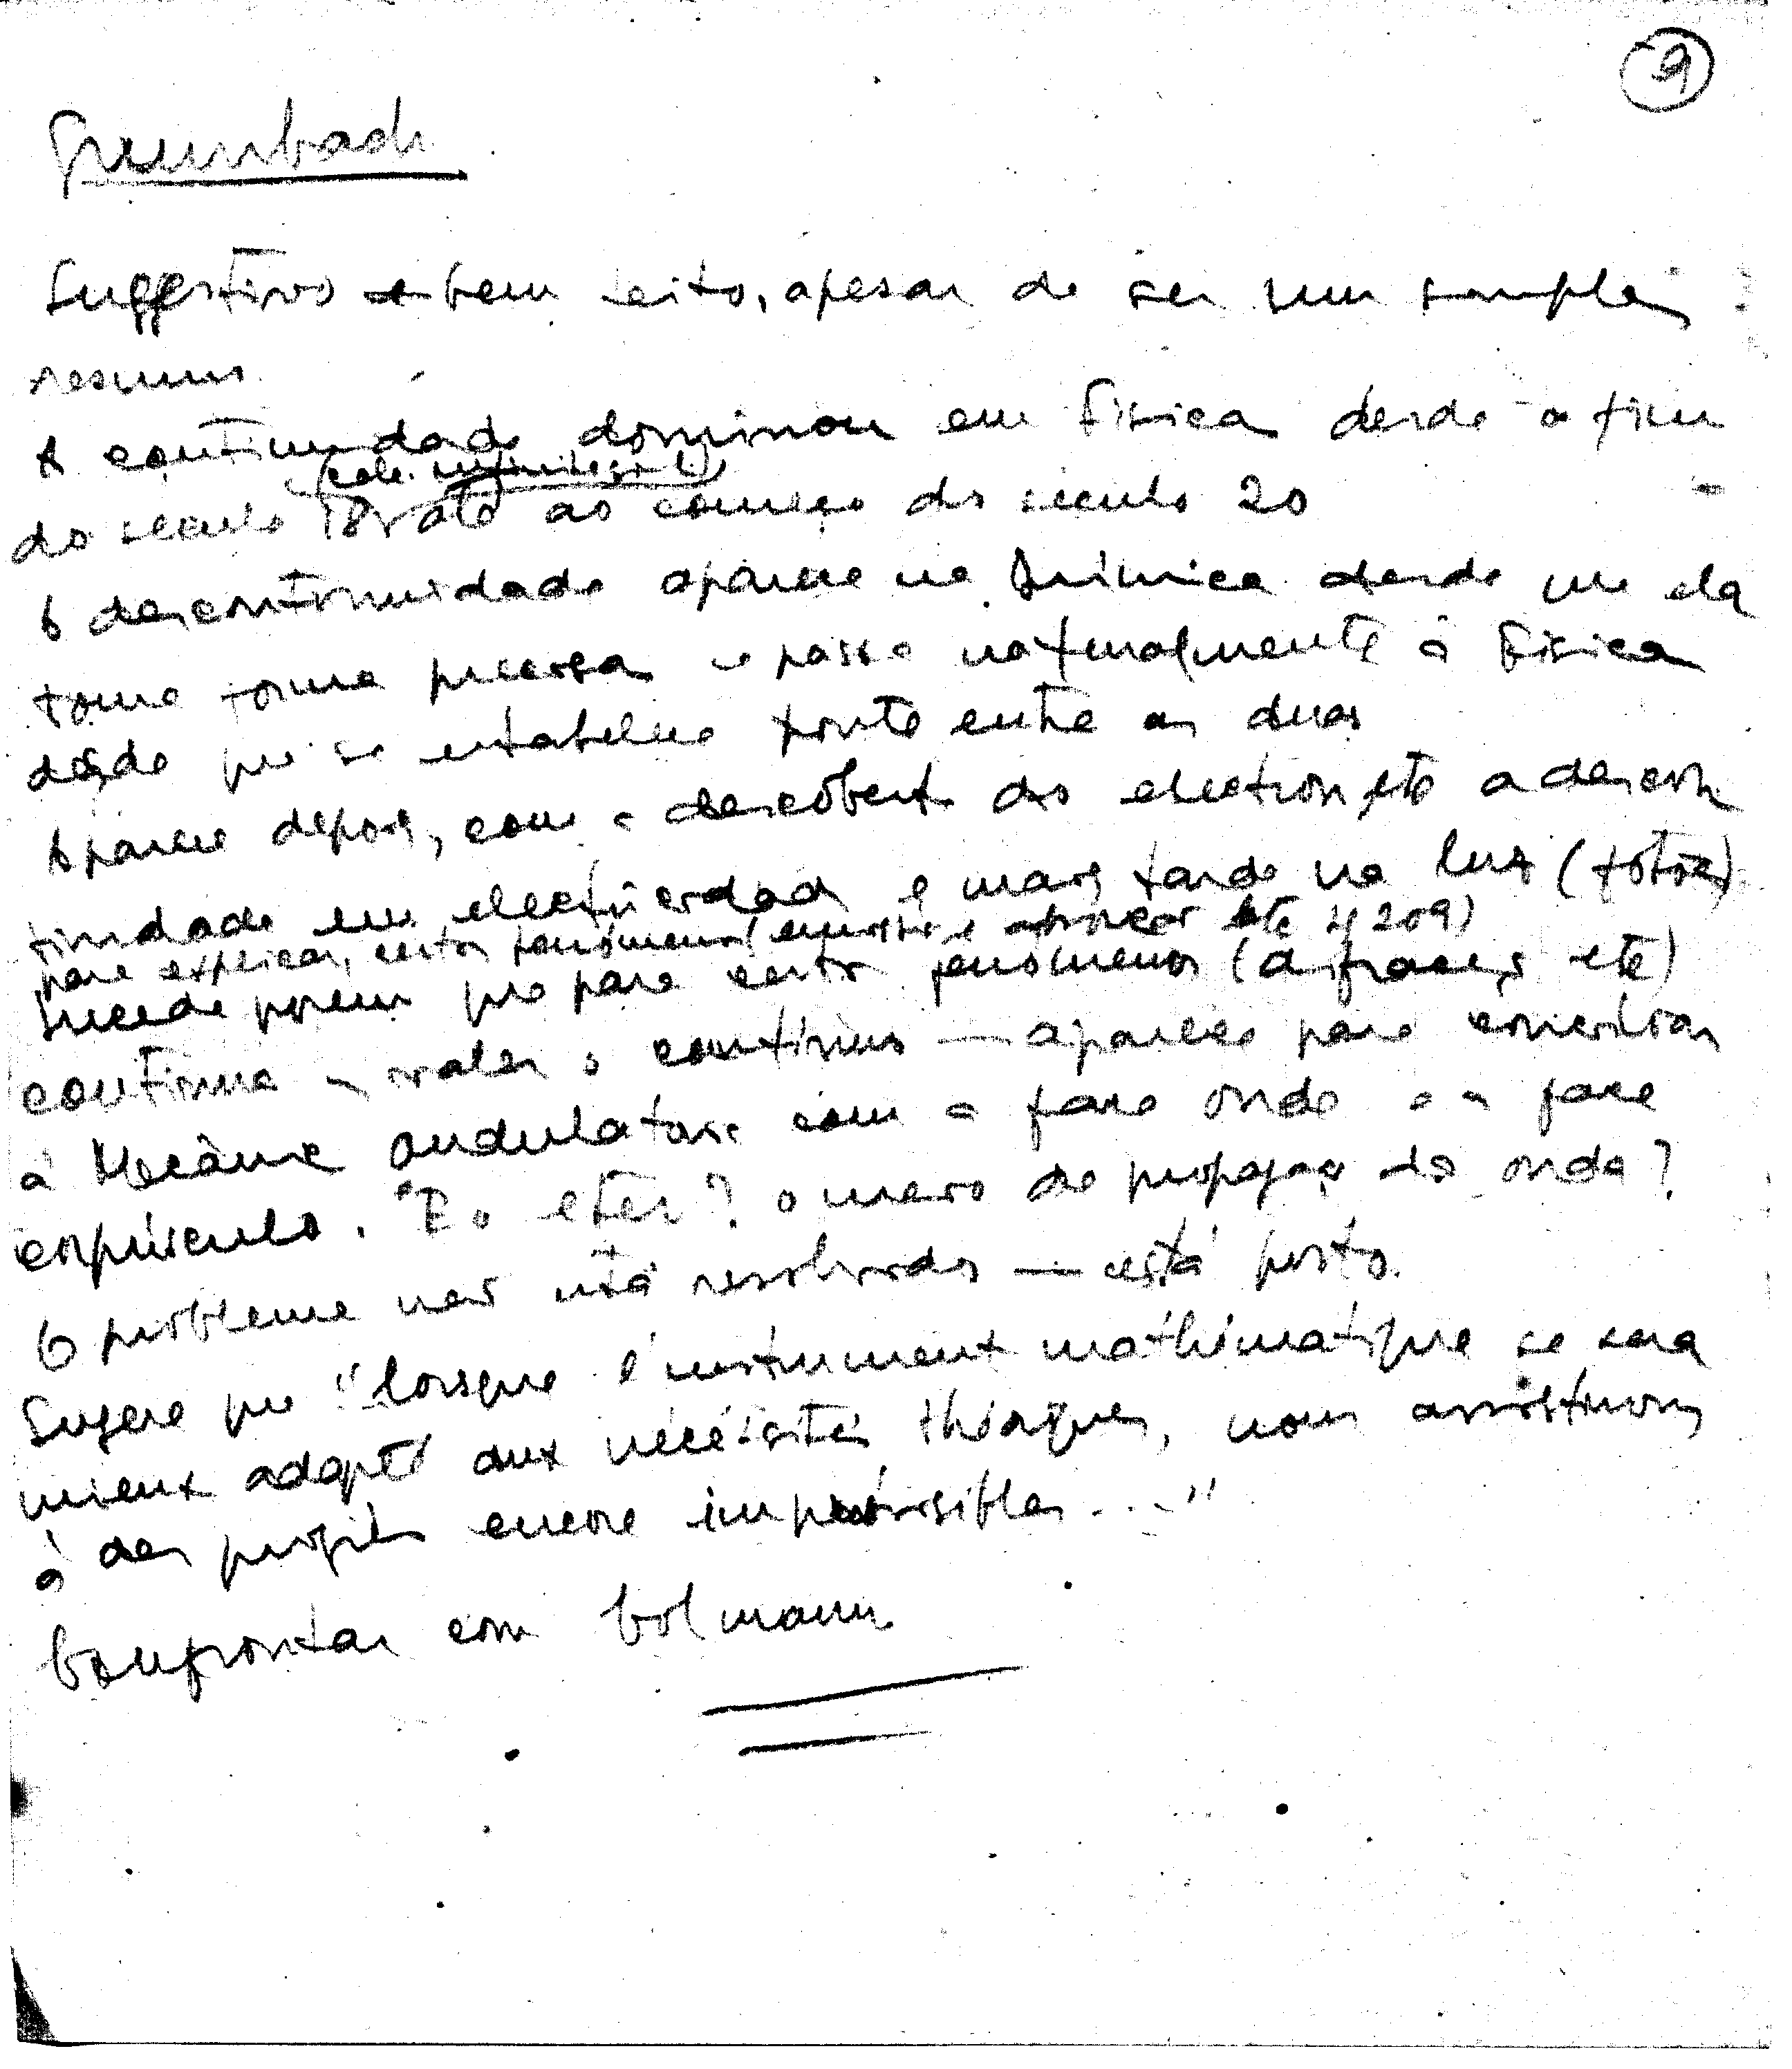 9
Grumbach
Suggestivo e bem feito, apesar de ser um simples
resumo.
A continuidade dominou em Física desde o fim
(calc. infinitesimal)
do seculo 18 até ao começo do seculo 20
A descontinuidade aparece na Química desde que ela
toma forma precisa e passa naturalmente à Física
desde que se estabelece ponte entre as duas
Aparece depois, com a descoberta do electron, etc a descon
tinuidade em electricidade e mais tarde na luz (fotões)
para explicar certos fenómenos (emissão e absorção etc 209)
Sucede porem que para certos fenomenos (difracção etc)
continua a valer o continuo — aparece para conciliar
a Mecânica ondulatoria com a face onda e a face
corpúsculo. E o eter? o meio de propagação da onda?
O problema não está resolvido — está posto.
Sugere que "lorsque l'instrument mathématique se sera
mieux adapté aux nécéssités théoriques, nous assisterons
à des progrès encore imprévisibles ..."
Confrontar com Bolmann